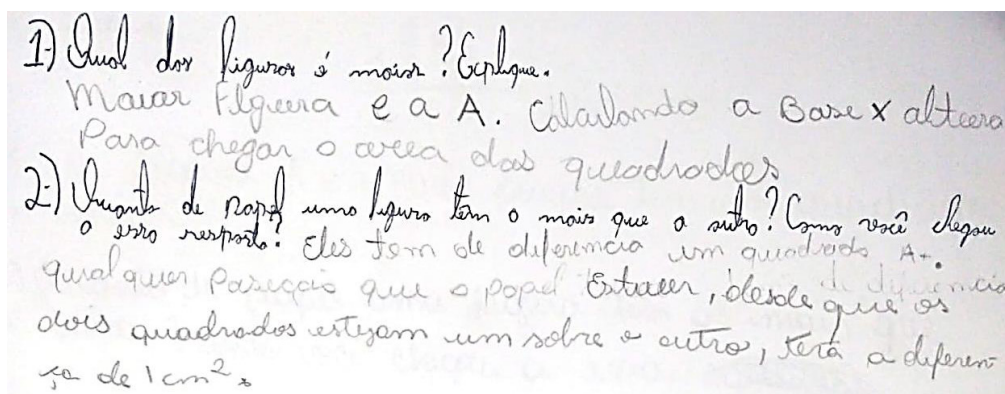 1-) Qual das figuras é maior? Explique.
Maior Figura e a A. Calculando a Base x altura
Para chegar o area dos quadrados
2-) Quanto de papel uma figura tem a mais que a outra? Como você chegou
a essa resposta? Eles tem de diferencia um quadrado A+.
qualquer que o papel Estiver, desde que os
dois quadrados estejam um sobre o outro, terá a diferen-
ça de 1 cm².